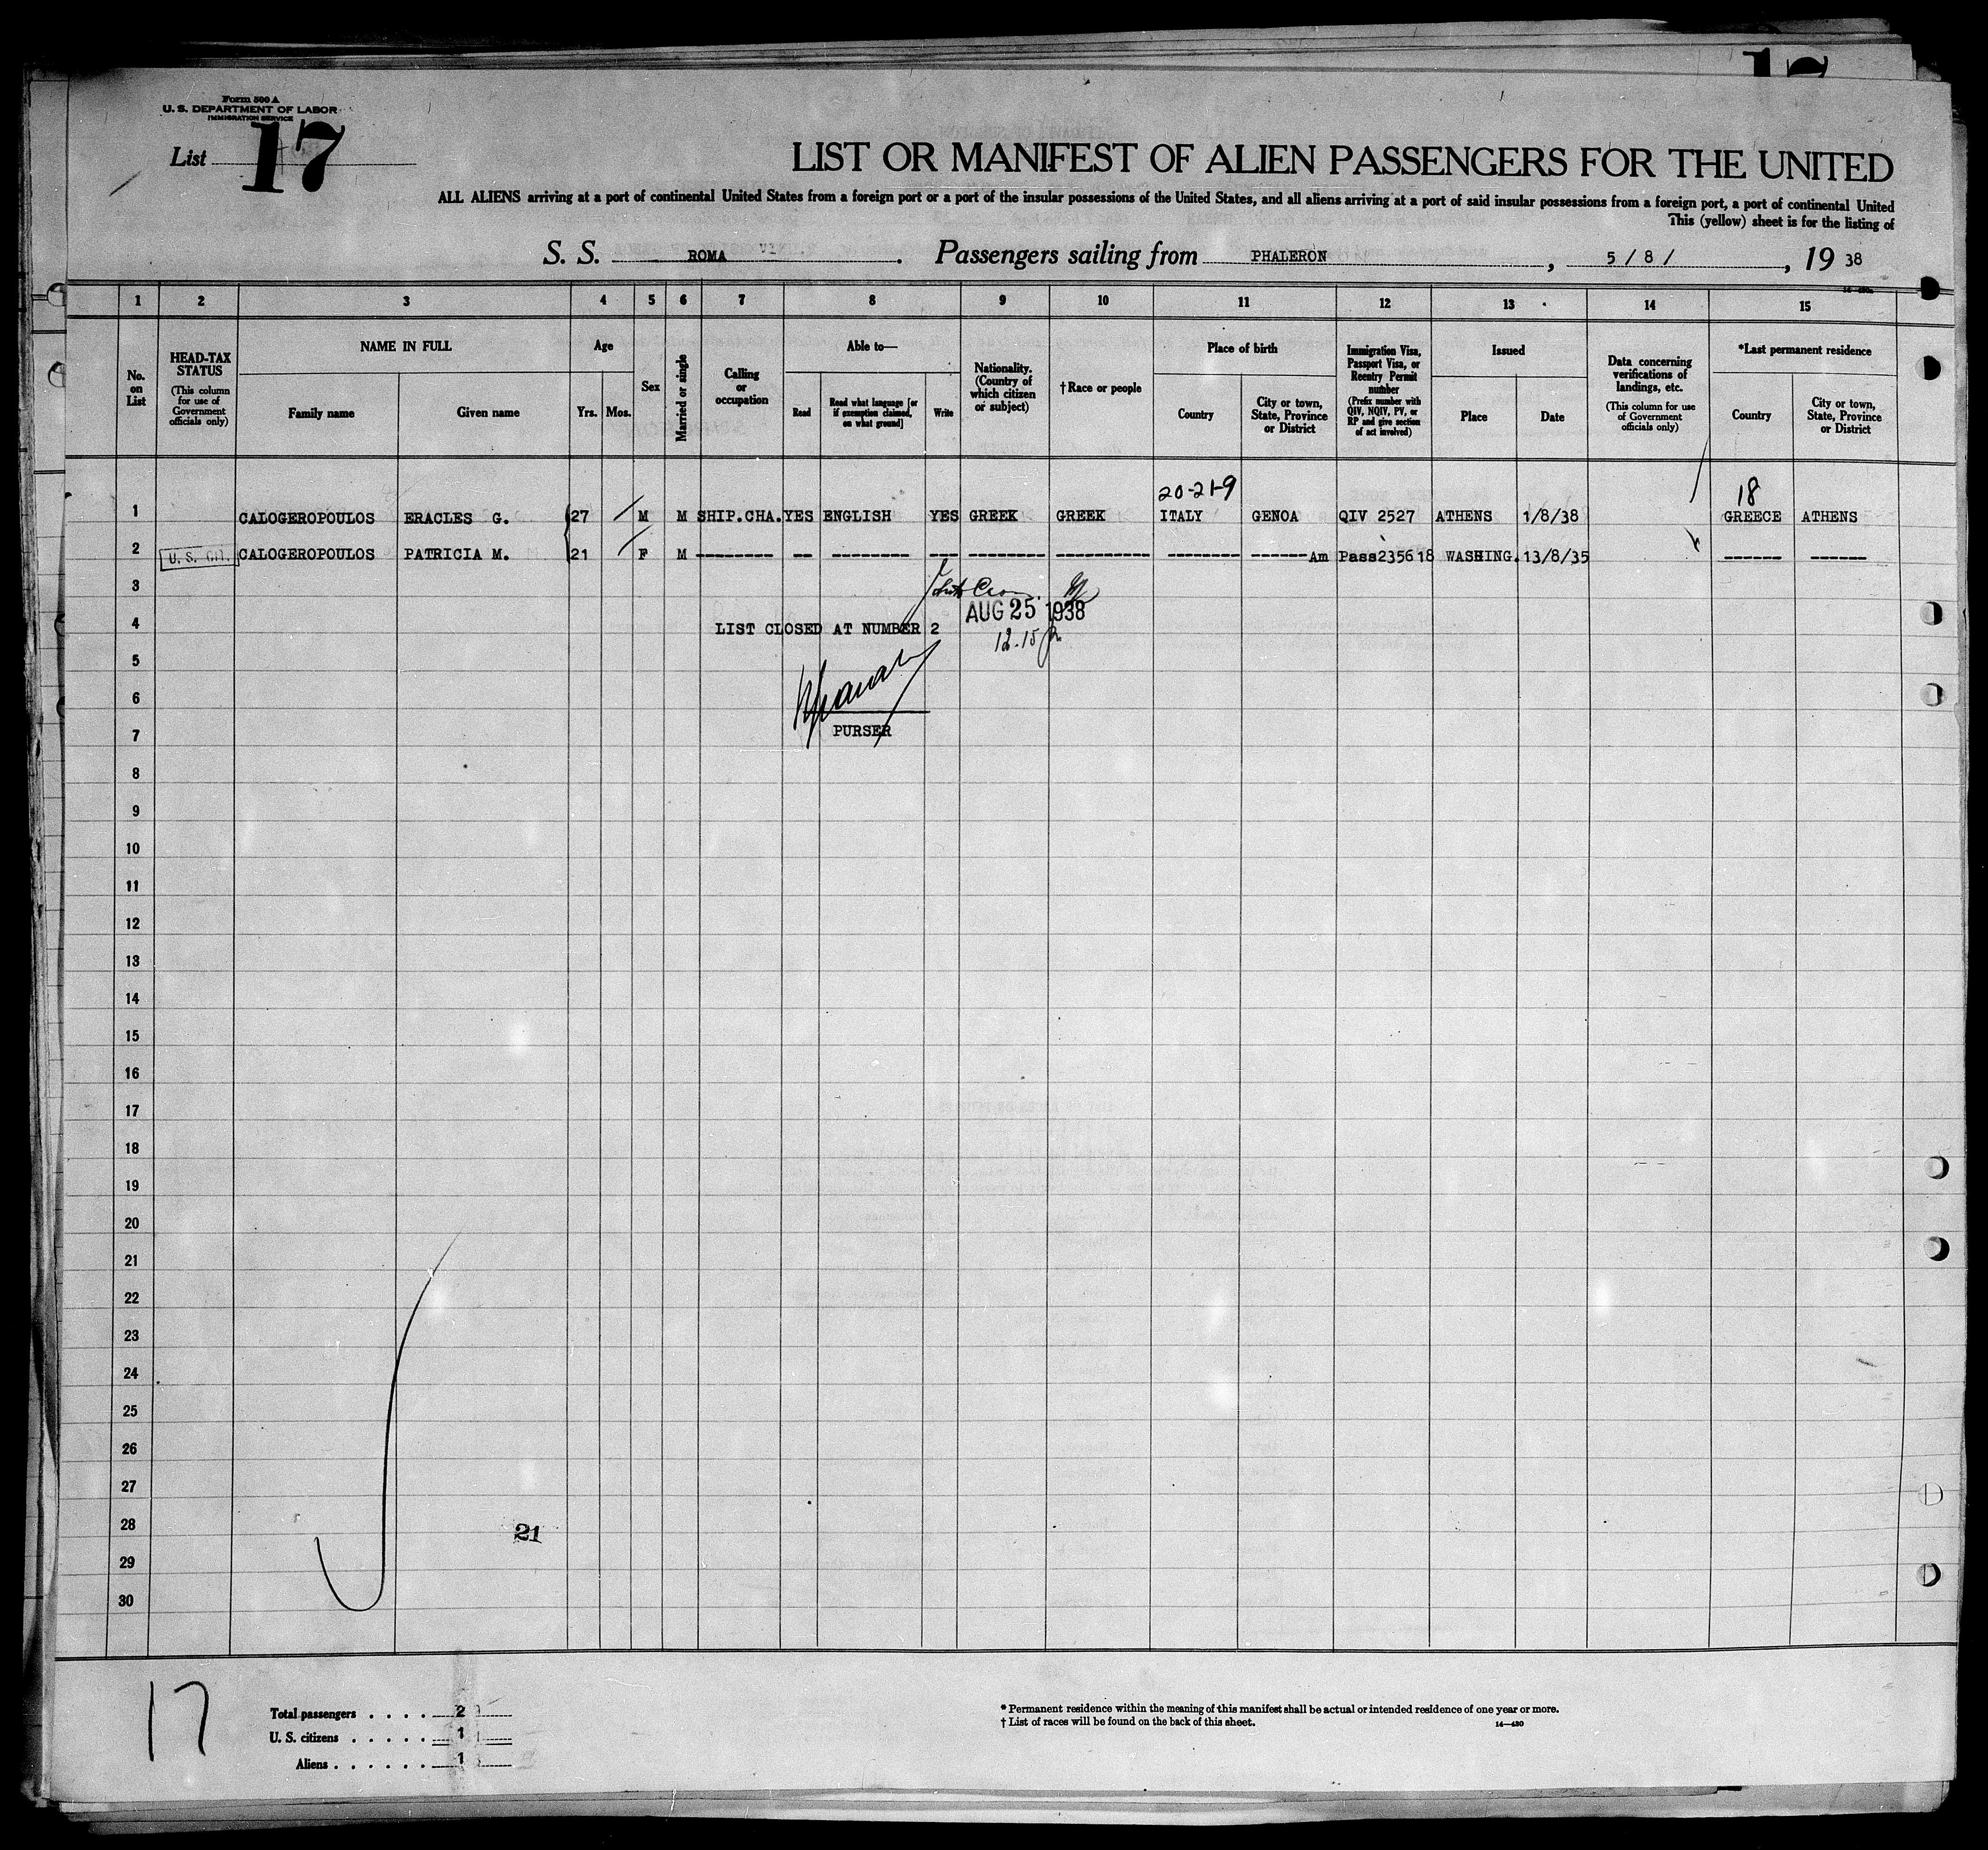 Form 500 A
U. S. DEPARTMENT OF LABOR
IMMIGRATION SERVICE
List 17
LIST OR MANIFEST OF ALIEN PASSENGERS FOR THE UNITED
ALL ALIENS arriving at a port of continental United States from a foreign port or a port of the insular possessions of the United States, and all aliens arriving at a port of said insular possessions from a foreign port, a port of continental United
This (yellow) sheet is for the listing of
S. S. ROMA . Passengers sailing from PHALERON , 5 / 8 / , 19 38
1 2 3 4 5 6 7 8 9 10 11 12 13 14 15
No. on List
HEAD-TAX STATUS
(This column for use of Government officials only)
NAME IN FULL
Family name
Given name
Age
Yrs. Mos.
Sex
Married or single
Calling or occupation
Able to—
Read
Read what language [or if exemption claimed, on what ground]
Write
Nationality. (Country of which citizen or subject)
† Race or people
Place of birth
Country
City or town, State, Province or District
Immigration Visa, Passport Visa, or Reentry Permit number
(Prefix number with QIV, NQIV, PV, or RP and give section of act involved)
Issued
Place
Date
Data concerning verifications of landings, etc.
(This column for use of Government officials only)
*Last permanent residence
Country
City or town, State, Province or District
20-21-9 18
1 CALOGEROPOULOS ERACLES G. 27 M M SHIP.CHA. YES ENGLISH YES GREEK GREEK ITALY GENOA QIV 2527 ATHENS 1/8/38 GREECE ATHENS
2 U. S. Cit. CALOGEROPOULOS PATRICIA M. 21 F M --------- -- --------- --- --------- ---------- -------- ------ Am Pass235618 WASHING. 13/8/35 ------ ------
3
AUG 25 1938
4 LIST CLOSED AT NUMBER 2
12.15 p.
5
6
7 PURSER
8
9
10
11
12
13
14
15
16
17
18
19
20
21
22
23
24
25
26
27
28 21
29
30
17
Total passengers . . . . 2
U. S. citizens . . . . . 1
Aliens . . . . . . 1
* Permanent residence within the meaning of this manifest shall be actual or intended residence of one year or more.
† List of races will be found on the back of this sheet.
14—430